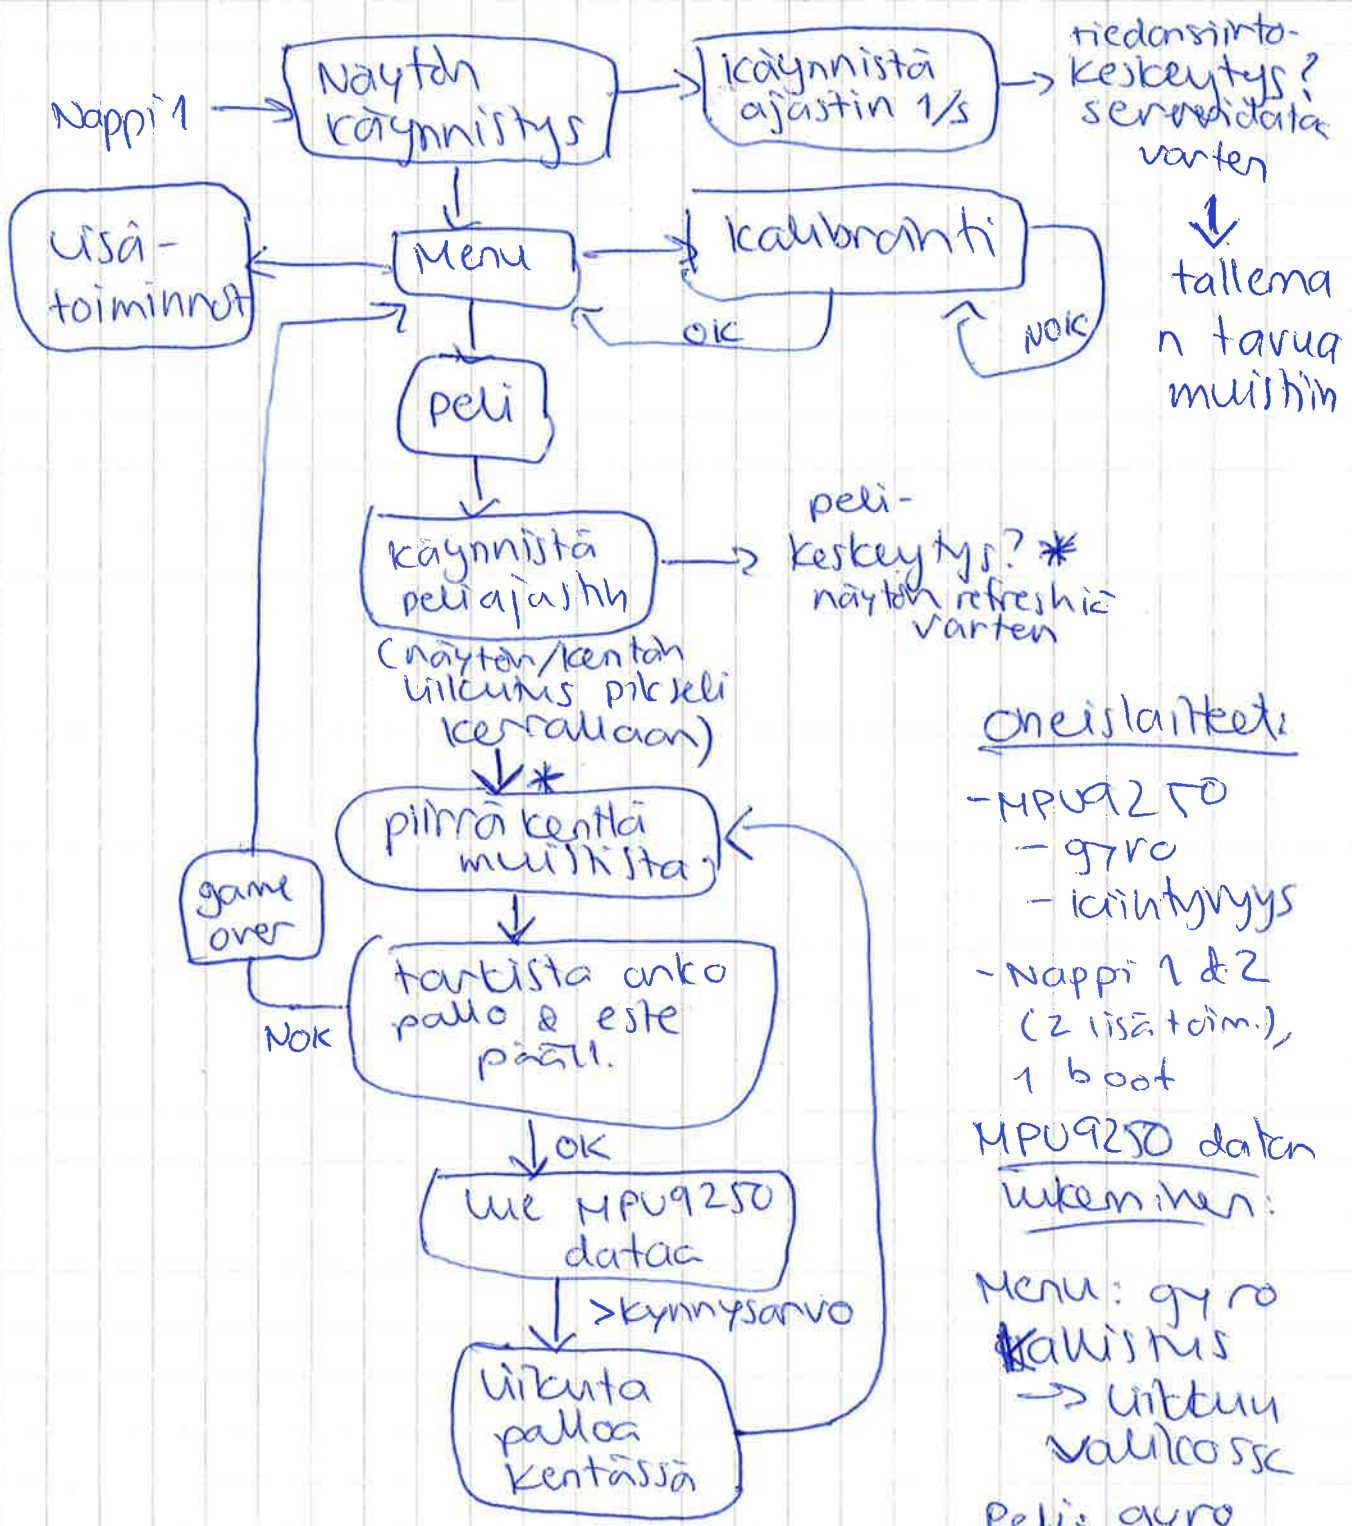 Nappi 1
Näytön
käynnistys
käynnistä
ajastin 1/s
tiedonsiirto-
keskeytys?
serveridataa
varten
tallenna
n tavua
muistiin
Lisä-
toiminnot
Menu
kalibrointi
OK
NOK
peli
käynnistä
peliajastin
(näytön/kentän
liikutus pikseli
kerrallaan)
peli-
keskeytys? *
näytön refreshiä
varten
*
piirrä kenttä
muistista
game
over
NOK
tarkista onko
pallo & este
pääll.
OK
lue MPU9250
dataa
>kynnysarvo
liikuta
palloa
kentässä
oheislaitteet:
- MPU9250
- gyro
- kiihtyvyys
- Nappi 1 & 2
(2 lisätoim.),
1 boot
MPU9250 datan
lukeminen:
Menu: gyro
kallistus
-> liikkuu
valikossa
Peli: gyro